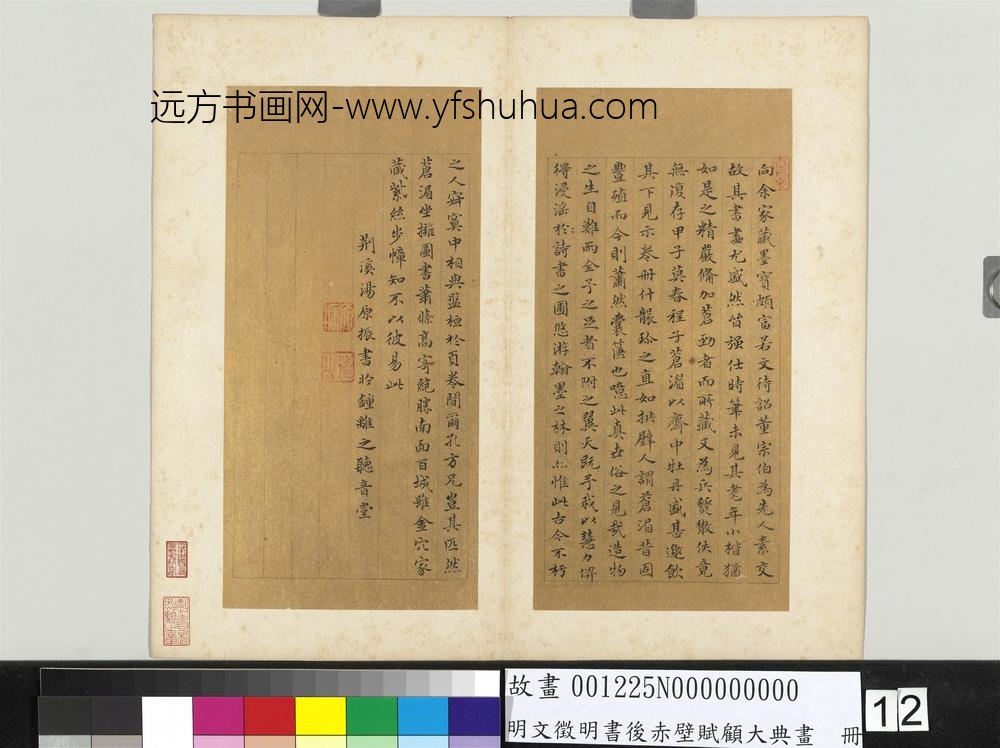 远方书画网-www.yfshuhua.com
向余家藏墨寶頗富若文待詔董宗伯為先人素交
故其書畫尤盛然皆强仕時筆未見其耄年小楷猶
如是之精嚴脩加蒼勁者而所藏又為兵燹散佚竟
無復存甲子莫春程子蒼湄以齋中牡丹盛甚邀飲
其下見示卷冊什襲珍之直如拱璧人謂蒼湄昔固
豐殖而今則蕭然囊篋也噫此真世俗之見哉造物
之生自難兩全予之足者不附之翼天既予我以慧力俾
得浸淫於詩書之圃悠游翰墨之林則亦惟此古今不朽
之人寂寞中相與盤桓於頁卷間爾孔方兄豈其匹然
蒼湄坐擁圖書蕭條高寄絶勝南面百城雖金穴家
藏紫絲步幛知不以彼易此
荆溪湯原振書於鍾離之聽音堂
故畫 001225N000000000
明文徵明書後赤壁賦顧大典畫 冊
12